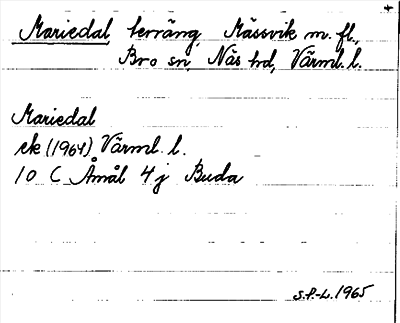 Mariedal, terräng, Mässvik m. fl.,
Bro sn, Näs hd, Värml. l.
Mariedal
ek (1964) Värml. l.
10 C Åmål 4 j Buda
S.P.-L. 1965